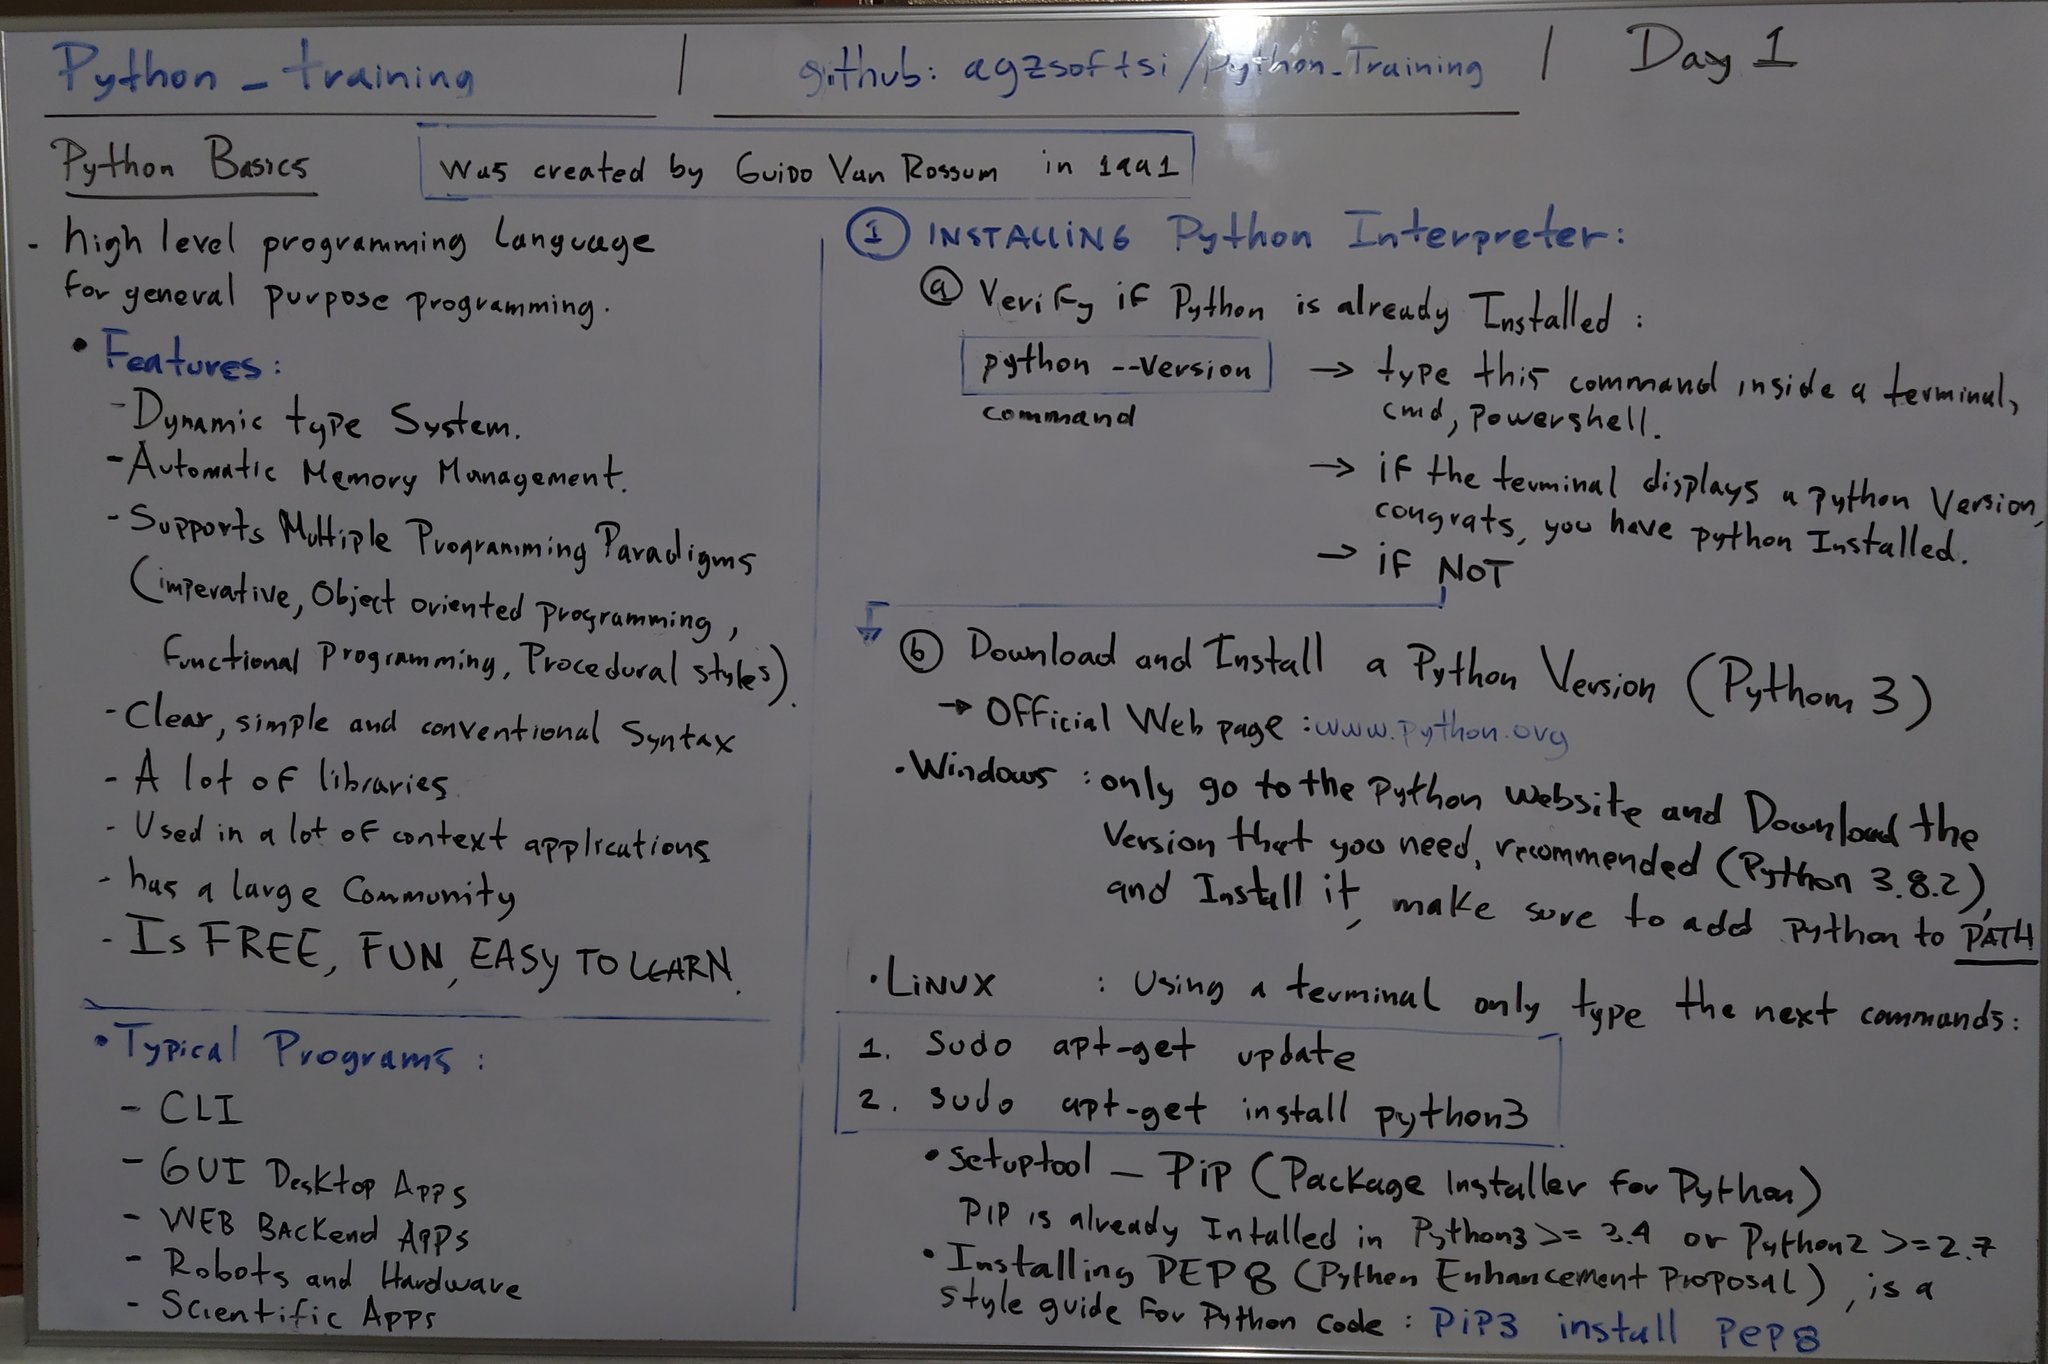 Python_training | github: agzsoftsi/Python_Training | Day 1
Python Basics
Was created by Guido Van Rossum in 1991
- high level programming Language
for general purpose programming.
• Features:
- Dynamic type System.
- Automatic Memory Management.
- Supports Multiple Programming Paradigms
(imperative, Object oriented programming,
functional Programming, Procedural styles).
- Clear, simple and conventional Syntax
- A lot of libraries
- Used in a lot of context applications
- has a large Community
- Is FREE, FUN, EASY TO LEARN.
• Typical Programs:
- CLI
- GUI Desktop Apps
- WEB Backend Apps
- Robots and Hardware
- Scientific Apps
1 INSTALLING Python Interpreter:
a Verify if Python is already Installed:
python --version
command
→ type this command inside a terminal,
cmd, powershell.
→ if the terminal displays a python Version,
congrats, you have python Installed.
→ if NOT
b Download and Install a Python Version (Python 3)
→ Official Web page: www.python.org
• Windows: only go to the Python website and Download the
Version that you need, recommended (Python 3.8.2),
and Install it, make sure to add Python to PATH
• Linux : Using a terminal only type the next commands:
1. sudo apt-get update
2. sudo apt-get install python3
• setuptool - PiP (Package Installer for Python)
PIP is already Intalled in Python3 >= 3.4 or Python2 >= 2.7
• Installing PEP8 (Python Enhancement Proposal), is a
style guide for Python code: PiP3 install pep8